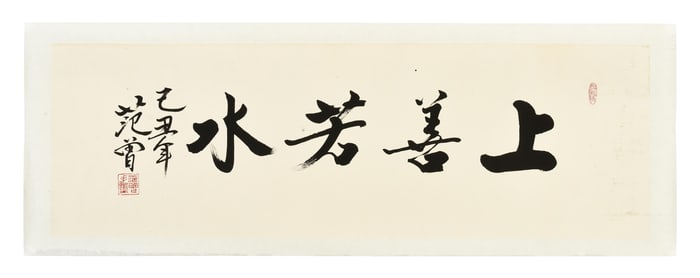 上善若水
己丑年
范曾